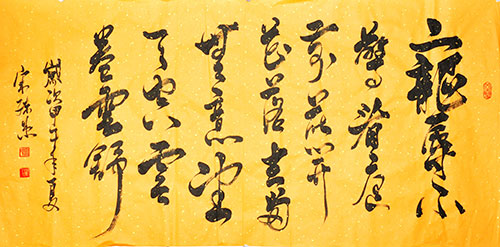 寵辱不
驚看庭
前花開
花落去留
無意望
天空雲
卷雲舒
歲次甲午年夏
宋